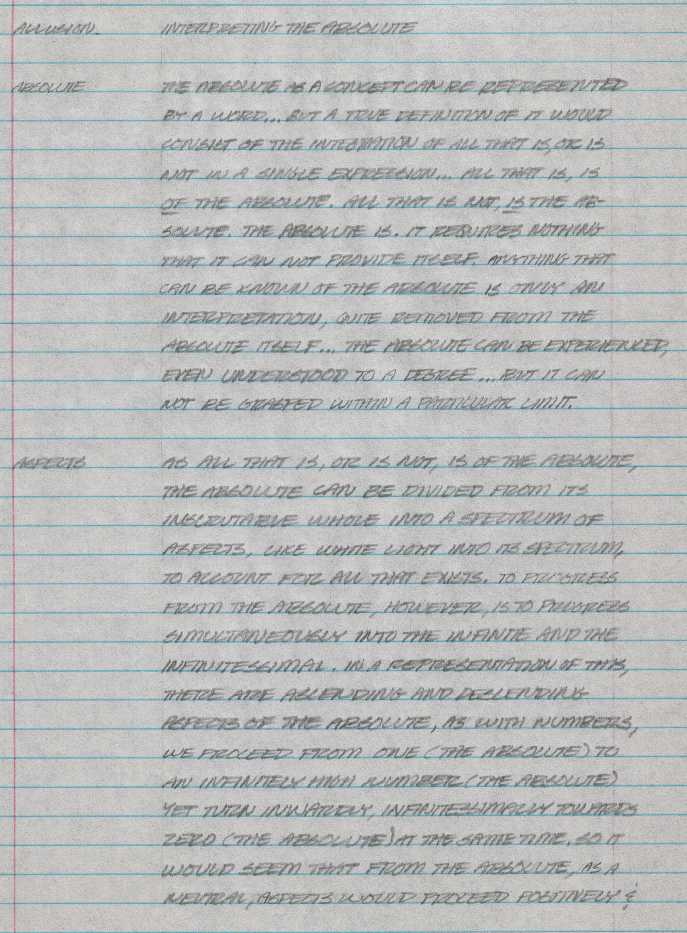 ALLUSION. INTERPRETING THE ABSOLUTE
ABSOLUTE THE ABSOLUTE AS A CONCEPT CAN BE REPRESENTED
BY A WORD... BUT A TRUE DEFINITION OF IT WOULD
CONSIST OF THE INTEGRATION OF ALL THAT IS, OR IS
NOT IN A SINGLE EXPRESSION... ALL THAT IS, IS
OF THE ABSOLUTE. ALL THAT IS NOT, IS THE AB-
SOLUTE. THE ABSOLUTE IS. IT REQUIRES NOTHING
THAT IT CAN NOT PROVIDE ITSELF. ANYTHING THAT
CAN BE KNOWN OF THE ABSOLUTE IS ONLY AN
INTERPRETATION, QUITE REMOVED FROM THE
ABSOLUTE ITSELF... THE ABSOLUTE CAN BE EXPERIENCED,
EVEN UNDERSTOOD TO A DEGREE... BUT IT CAN
NOT BE GRASPED WITHIN A PARTICULAR LIMIT.
ASPECTS AS ALL THAT IS, OR IS NOT, IS OF THE ABSOLUTE,
THE ABSOLUTE CAN BE DIVIDED FROM ITS
INSCRUTABLE WHOLE INTO A SPECTRUM OF
ASPECTS, LIKE WHITE LIGHT INTO ITS SPECTRUM,
TO ACCOUNT FOR ALL THAT EXISTS. TO PROGRESS
FROM THE ABSOLUTE, HOWEVER, IS TO PROGRESS
SIMULTANEOUSLY INTO THE INFINITE AND THE
INFINITESSIMAL. IN A REPRESENTATION OF THIS,
THERE ARE ASCENDING AND DESCENDING
ASPECTS OF THE ABSOLUTE, AS WITH NUMBERS,
WE PROCEED FROM ONE (THE ABSOLUTE) TO
AN INFINITELY HIGH NUMBER (THE ABSOLUTE)
YET TURN INWARDLY, INFINITESSIMALLY TOWARDS
ZERO (THE ABSOLUTE) AT THE SAME TIME. SO IT
WOULD SEEM THAT FROM THE ABSOLUTE, AS A
NEUTRAL, ASPECTS WOULD PROCEED POSITIVELY &